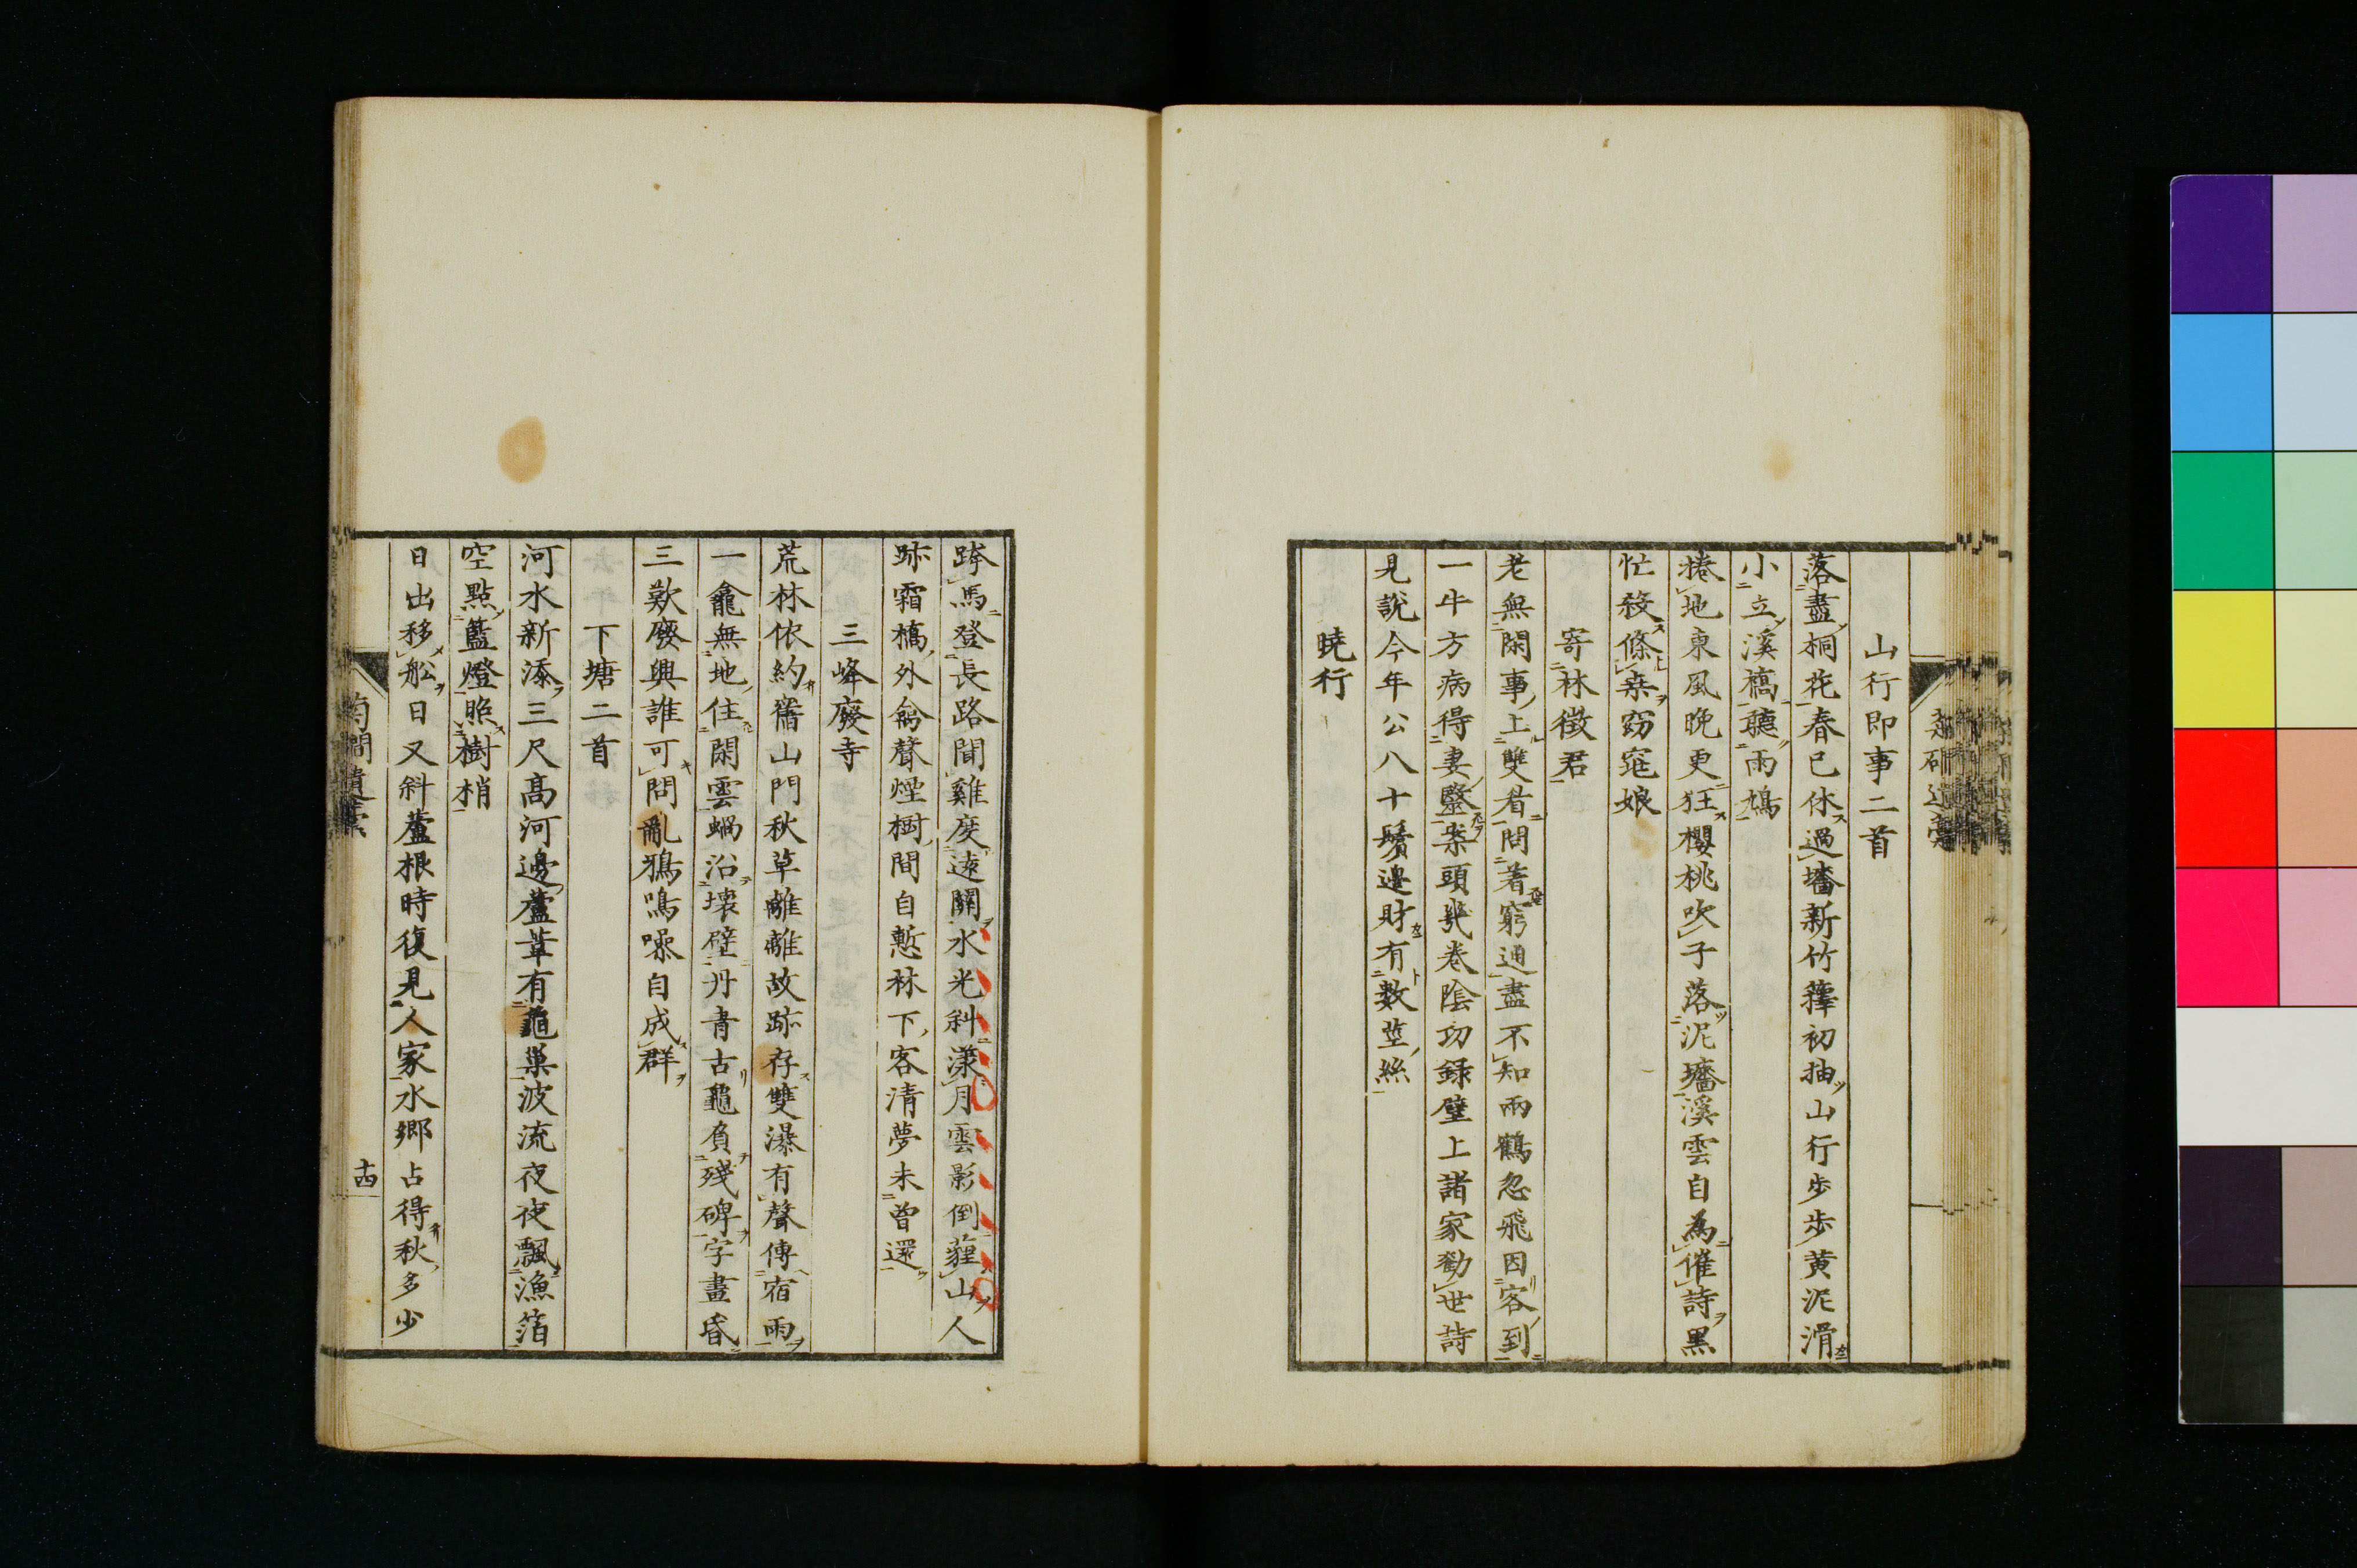 山行即事二首
落盡桐花春已休過墻新竹籜初抽山行步步黄泥滑
小立溪橋聽雨鳩
捲地東風晚更狂櫻桃吹子落泥墻溪雲自為催詩黑
忙殺條桒窈窕娘
寄林徴君
老無閑事上雙眉問著窮通盡不知兩鶴忽飛因客到
一牛方病得妻醫案頭幾卷陰功録壁上諸家勸世詩
見說今年公八十鬚邊財有數莖絲
曉行
跨馬登長路聞雞度遠關水光斜漾月雲影倒薶山人
跡霜橋外禽聲煙樹間自慙林下客清夢未曾還
三峰廢寺
荒林依約舊山門秋草離離故跡存雙瀑有聲傳宿雨
一龕無地住閑雲蝸沿壞壁丹青古龜負殘碑字畫昏
三歎廢興誰可問亂鴉鳴噪自成群
下塘二首
河水新添三尺高河邊蘆葦有龜巢波流夜夜飄漁箔
空點籃燈照樹梢
日出移舩日又斜蘆根時復見人家水鄉占得秋多少
菊磵遺藁
十四